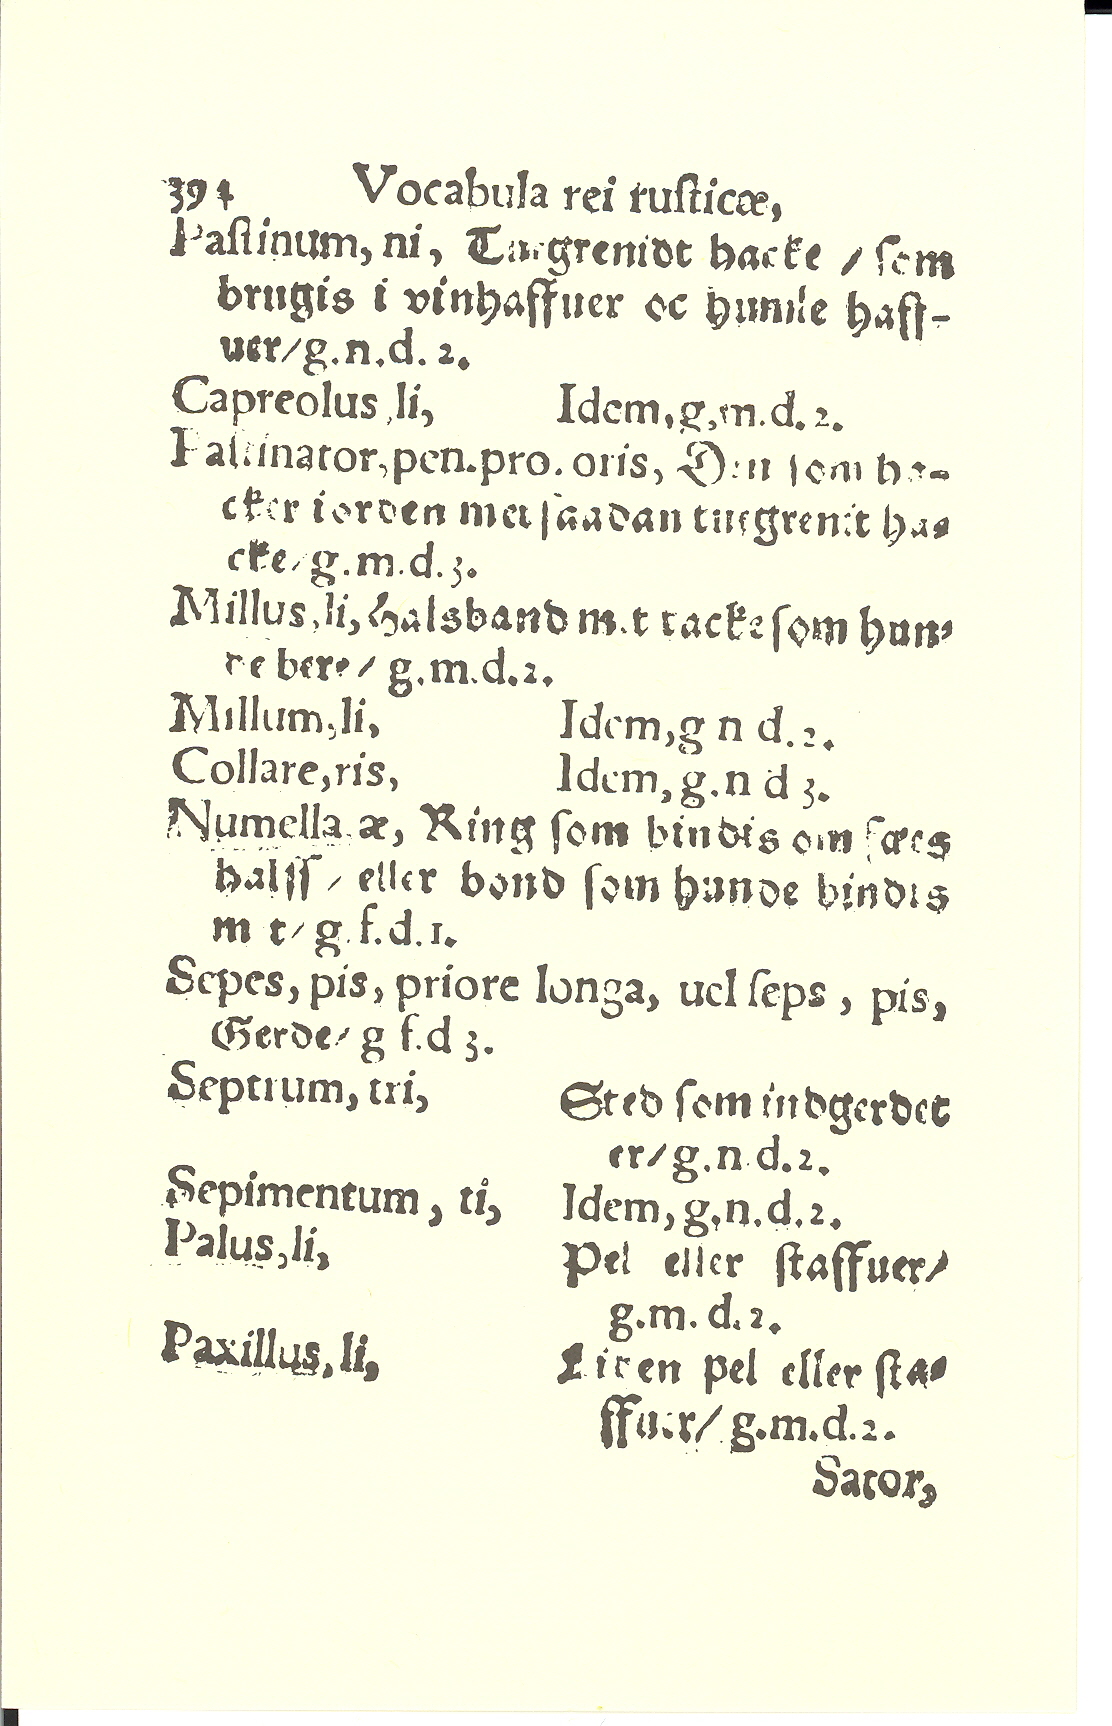 394 Vocabula rei rusticæ,
Pastinum, ni, Tuegrenidt hacke / som
brugis i vinhaffuer oc humle haff-
uer/g.n.d.2.
Capreolus,li, Idem,g,m.d.2.
Pastinator,pen.pro.oris, Den som ha-
cker iorden met saadan tuegrenit ha-
cke/g.m.d.3.
Millus,li,Halsband met tacke som hun-
de bere/ g.m.d.2.
Millum,li, Idem,g n d.2.
Collare,ris, Idem,g.n d 3.
Numella.æ, Ring som bindis om fæes
halss / eller bond som hunde bindis
met/ g.f.d.1.
Sepes, pis, priore longa, uel seps, pis,
Gerde/ g f.d 3.
Septrum, tri, Sted som indgerdet
er/g.n.d.2.
Sepimentum, ti, Idem,g.n.d.2.
Palus,li, Pel eller staffuer/
g.m.d.2.
Paxillus,li, Liten pel eller sta-
ffuer/ g.m.d.2.
Sator,